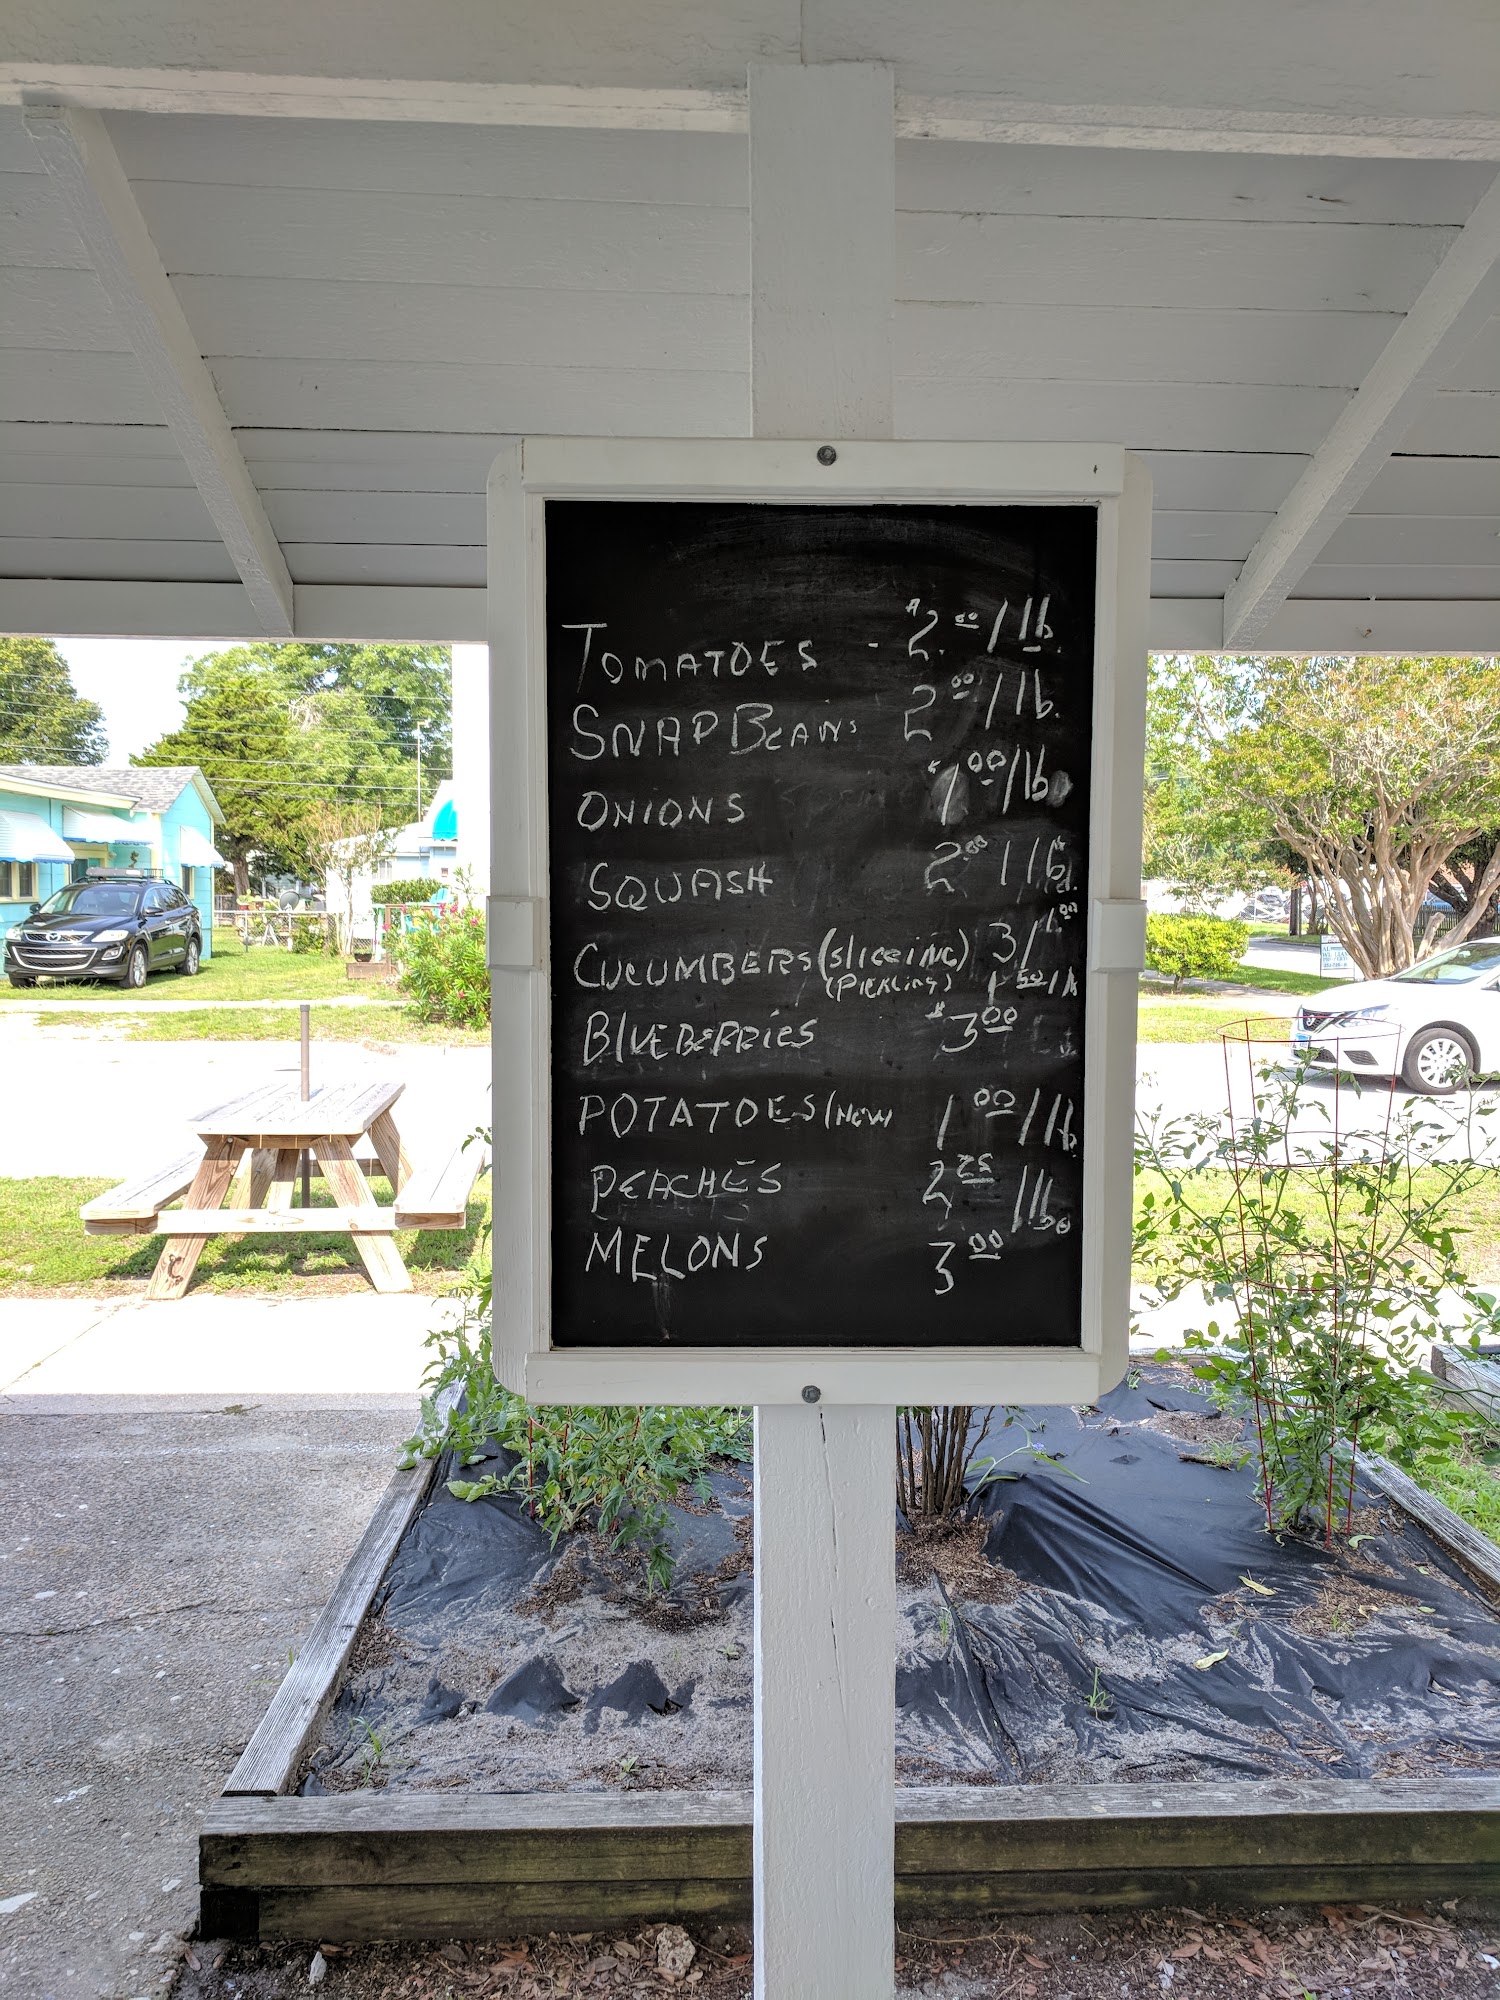 TOMATOES - $2.00/lb.
SNAP BEANS 2.00/lb.
ONIONS 1.00/lb
SQUASH 2.00 / lb.
CUCUMBERS (SLICEING) 3/1.00
(PICKLING) 1.50/lb
BLUEBERRIES $3.00
POTATOES (NEW 1.00/lb
PEACHES 2.25 /lb
MELONS 3.00